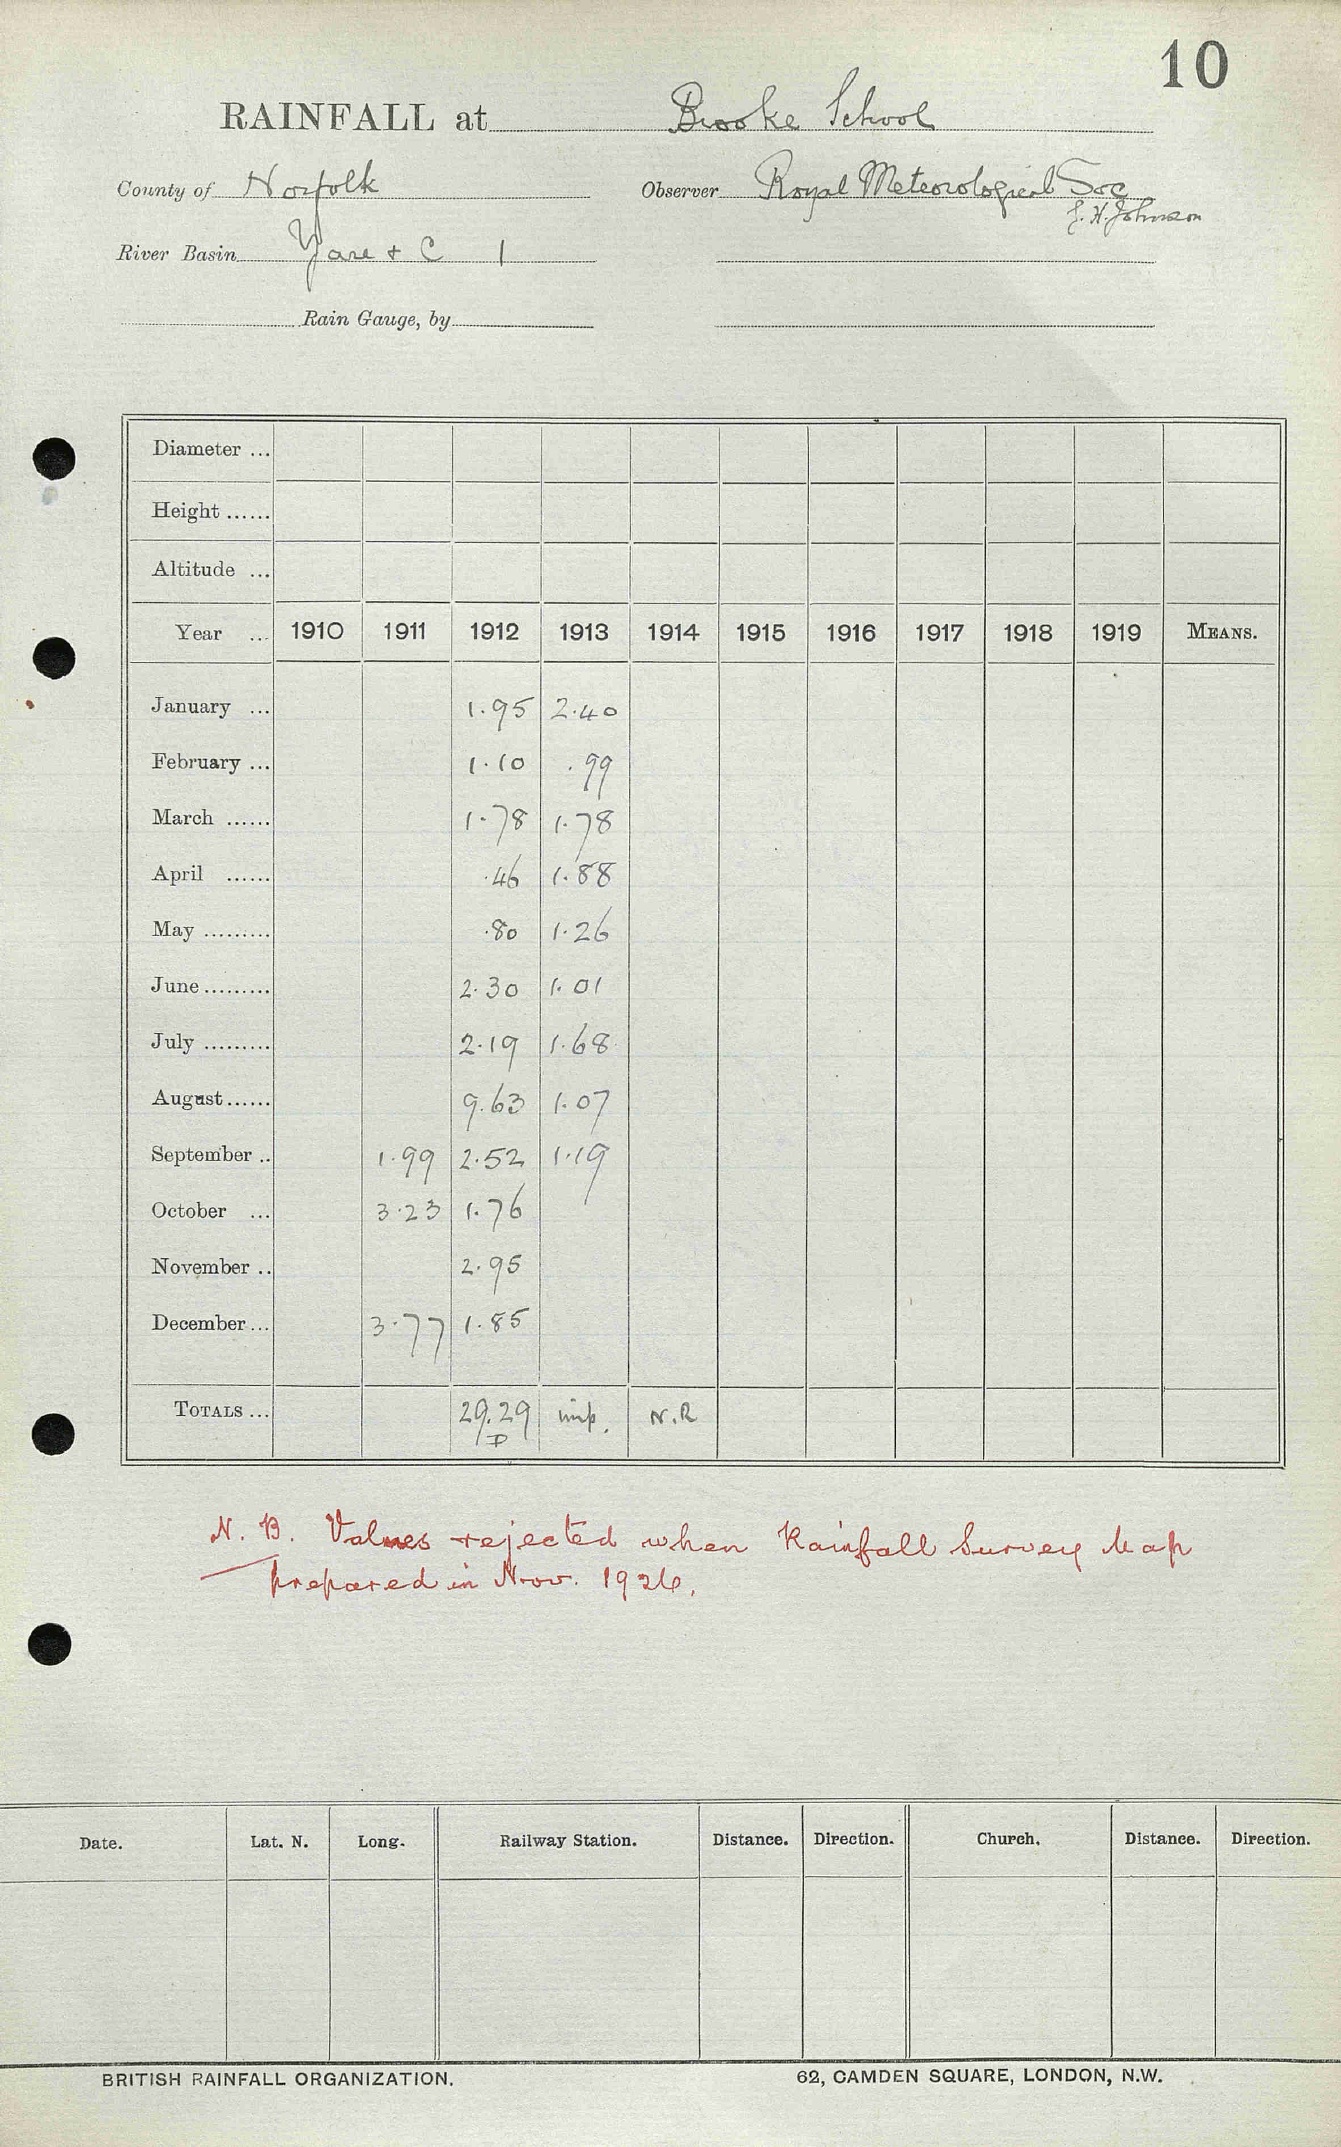 10
RAINFALL at Brooke School
County of Norfolk Observer Royal Meteorological Soc
J. H. Johnson
River Basin Yare + C 1
Rain Gauge, by
Diameter ...
Height ......
Altitude ...
Year ... 1910 1911 1912 1913 1914 1915 1916 1917 1918 1919 MEANS.
January ... 1.95 2.40
February ... 1.10 .99
March ...... 1.78 1.78
April ...... .46 1.88
May ......... .80 1.26
June ......... 2.30 1.01
July ......... 2.19 1.68
August ...... 9.63 1.07
September .. 1.99 2.52 1.19
October ... 3.23 1.76
November .. 2.95
December ... 3.77 1.85
TOTALS ... 29.29 imp. N.R
D
N. B. Values rejected when Rainfall Survey Map
prepared in Nov. 1926.
Date. Lat. N. Long. Railway Station. Distance. Direction. Church. Distance. Direction.
BRITISH RAINFALL ORGANIZATION. 62, CAMDEN SQUARE, LONDON, N.W.